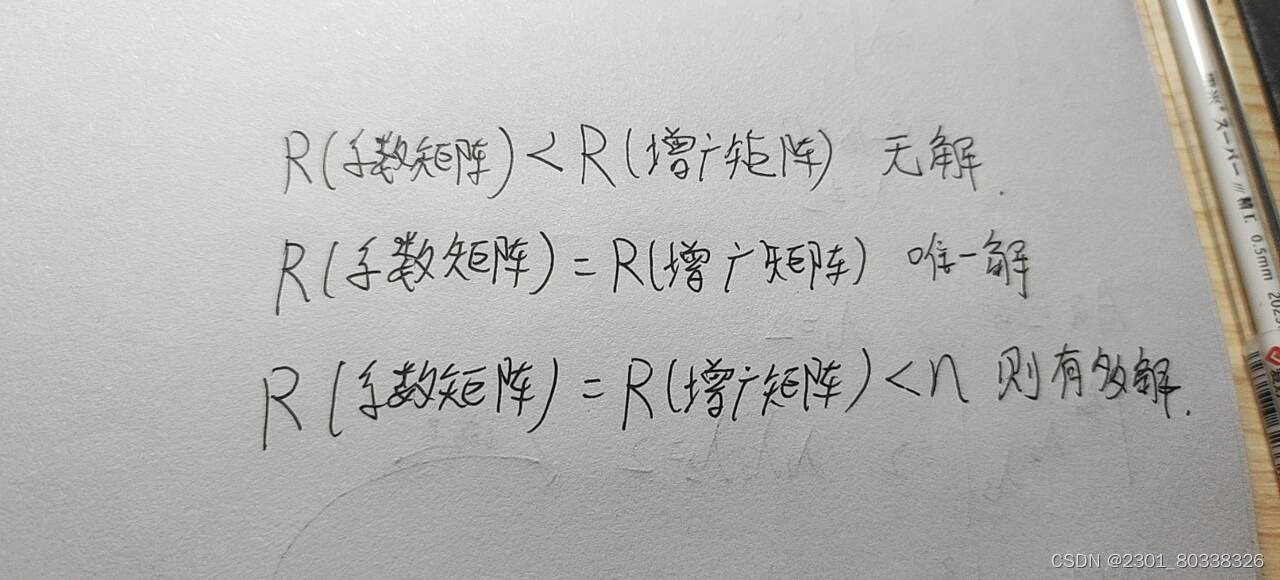 R(系数矩阵)<R(增广矩阵) 无解.
R(系数矩阵)=R(增广矩阵) 唯一解
R(系数矩阵)=R(增广矩阵)<n 则有多解.
スーパー /// 精工 0.5mm 202
CSDN @2301_80338326